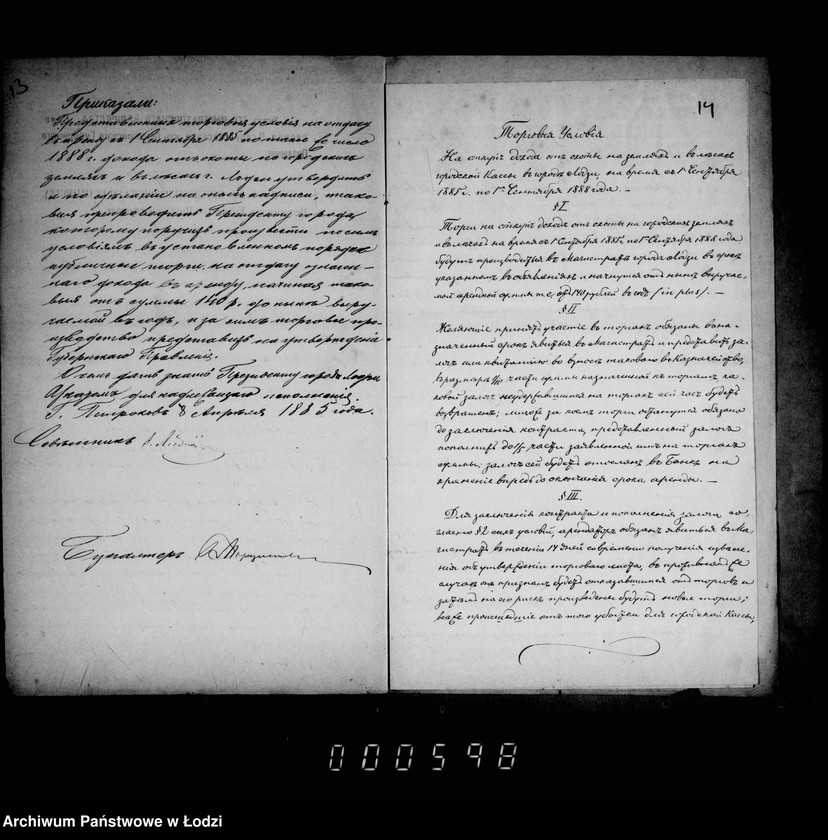 13
Приказали:
Представленныя торговыя условія на отдачу
въ аренду съ 1 Сентября 1885 по такое же число
1888 г. дохода отъ охоты на городскихъ
земляхъ и въ лѣсахъ г. Лодзи утвердить
и по сдѣланіи на нихъ надписи, тако-
выя препроводить Президенту города,
которому поручить произвести по симъ
условіямъ въ установленномъ порядкѣ
публичные торги, на отдачу означен-
наго дохода въ аренду, начиная тако-
выя отъ суммы 140 р. до нынѣ выру-
чаемой въ годъ, и за симъ торговое про-
изводство представить на утвержденіе
Губернскаго Правленія.
О чемъ дать знать Президенту города Лодзи
Указомъ для надлежащаго исполненія.
Г. Петроковъ 8 Апрѣля 1885 года.
Совѣтникъ
Бухгалтеръ
14
Торговыя Условія
На откупъ дохода отъ охоты на земляхъ и въ лѣсахъ
городской Кассы въ городѣ Лодзи, на время съ 1го Сентября
1885 г. по 1го Сентября 1888 года. —
§ I
Торги на откупъ дохода отъ охоты на городскихъ земляхъ
и въ лѣсахъ на время съ 1го Сентября 1885 г. по 1го Сентября 1888 года
будутъ производиться въ Магистратѣ города Лодзи въ срокъ
указанномъ въ объявленіяхъ и начнутся отъ нынѣ выручае-
мой арендной суммы т. е. отъ 140 рублей въ годъ (in plus). —
§ II
Желающіе принять участіе въ торгахъ обязаны въ на-
значенный срокъ явиться въ Магистратъ и представить за-
логъ или квитанцію во взносѣ таковаго въ Казначейство,
въ размѣрѣ 1/10 части суммы назначенной къ торгамъ, ка-
ковой залогъ неудержавшимся на торгахъ сей часъ будетъ
возвращенъ; лицо же за коимъ торги останутся обязано
до заключенія контракта, представленный залогъ
пополнить до части заявленной имъ на торгахъ
суммы, залогъ сей будетъ отосланъ въ Банкъ на
храненіе впредь до окончанія срока аренды. —
§ III.
Для заключенія контракта и пополненія залога со-
гласно § 2 сихъ условій, арендаторъ обязанъ явиться въ Ма-
гистратъ въ теченіи 14 дней со времени полученія извѣще-
нія объ утвержденіи торговаго листа, въ противномъ же
случаѣ онъ признанъ будетъ отказавшимся отъ торговъ и
затѣмъ на его рискъ произведены будутъ новые торги;
всѣ же происшедшіе отъ того убытки для городской Кассы,
000598
Archiwum Państwowe w Łodzi